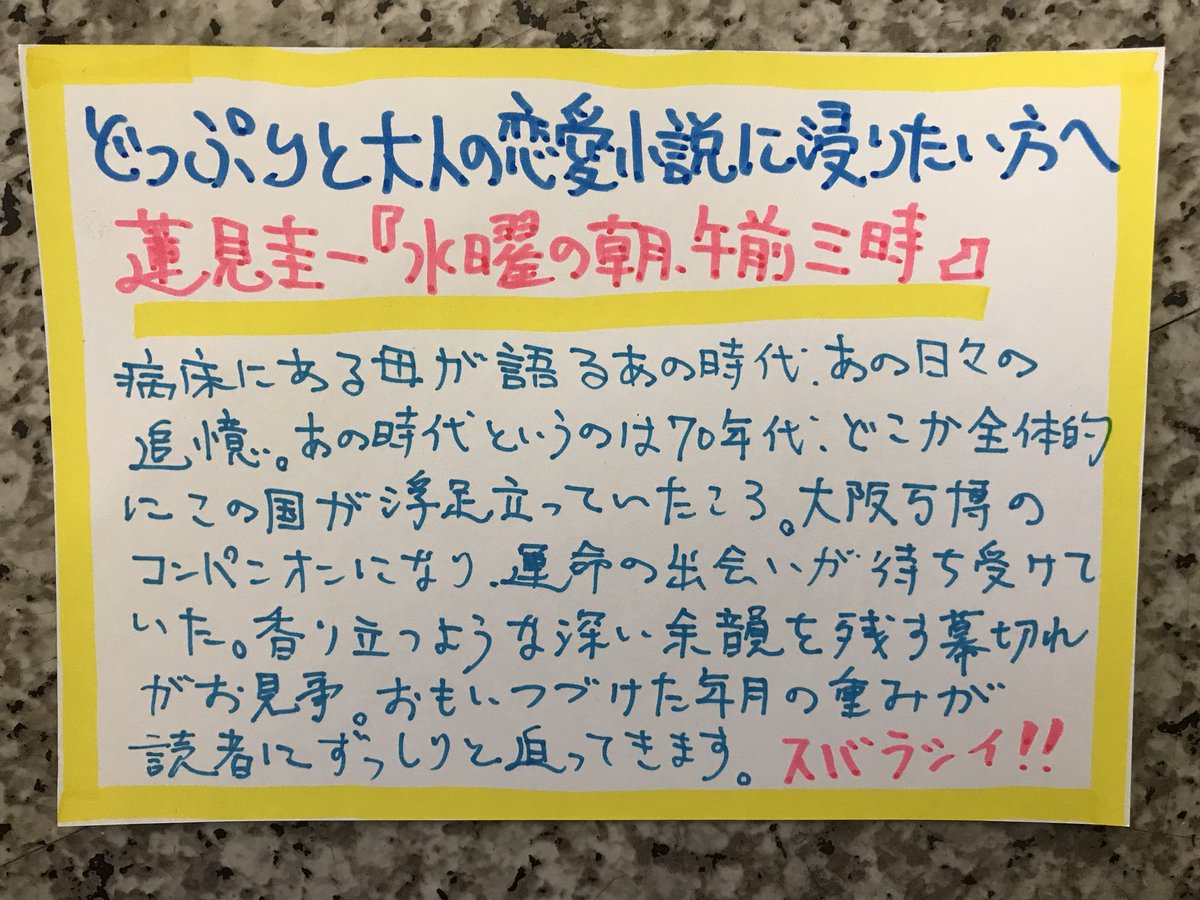 どっぷりと大人の恋愛小説に浸りたい方へ
蓮見圭一『水曜の朝、午前三時』
病床にある母が語るあの時代、あの日々の
追憶。あの時代というのは70年代、どこか全体的
にこの国が浮足立っていたころ。大阪万博の
コンパニオンになり、運命の出会いが待ち受けて
いた。香り立つような深い余韻を残す幕切れ
がお見事。おもいつづけた年月の重みが
読者にずっしりと迫ってきます。スバラシイ!!